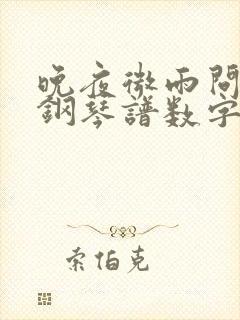 晚夜微雨問
鋼琴譜数字
索伯克